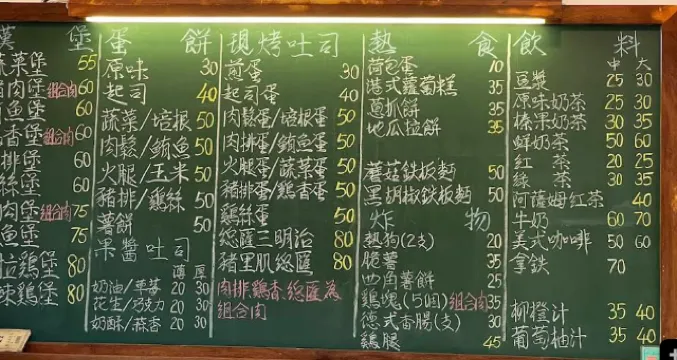 漢 堡
蔬菜堡 55
豬肉堡 組合肉 60
鮪魚堡 60
香堡 組合肉 60
排堡 60
絲堡 60
肉堡 組合肉 75
魚堡 75
拉鷄堡 80
辣鷄堡 80
蛋 餅
原味 30
起司 40
蔬菜/培根 50
肉鬆/鮪魚 50
火腿/玉米 50
豬排/鷄絲 50
薯餅 50
果醬吐司
薄 厚
奶油/草莓 20 30
花生/巧克力 20 30
奶酥/蒜香 20 30
現烤吐司
煎蛋 30
起司蛋 40
肉鬆蛋/培根蛋 50
肉排蛋/鮪魚蛋 50
火腿蛋/蔬菜蛋 50
豬排蛋/鷄香蛋 50
鷄絲蛋 50
總匯三明治 80
豬里肌總匯 80
肉排.鷄香.總匯為
組合肉
熱 食
荷包蛋 10
港式蘿蔔糕 35
蔥抓餅 35
地瓜拉餅 35
蘑菇鉄板麵 50
黑胡椒鉄板麵 50
炸 物
熱狗(2支) 20
脆薯 35
四角薯餅 25
鷄塊(5塊)組合肉 35
德式香腸(支) 30
鷄腿 45
飲 料
中 大
豆漿 25 30
原味奶茶 25 30
榛果奶茶 30 35
鮮奶茶 50 60
紅 茶 20 25
綠 茶 30 35
阿薩姆紅茶 40
牛奶 60 70
美式咖啡 50 60
拿鉄 70
柳橙汁 35 40
葡萄柚汁 35 40